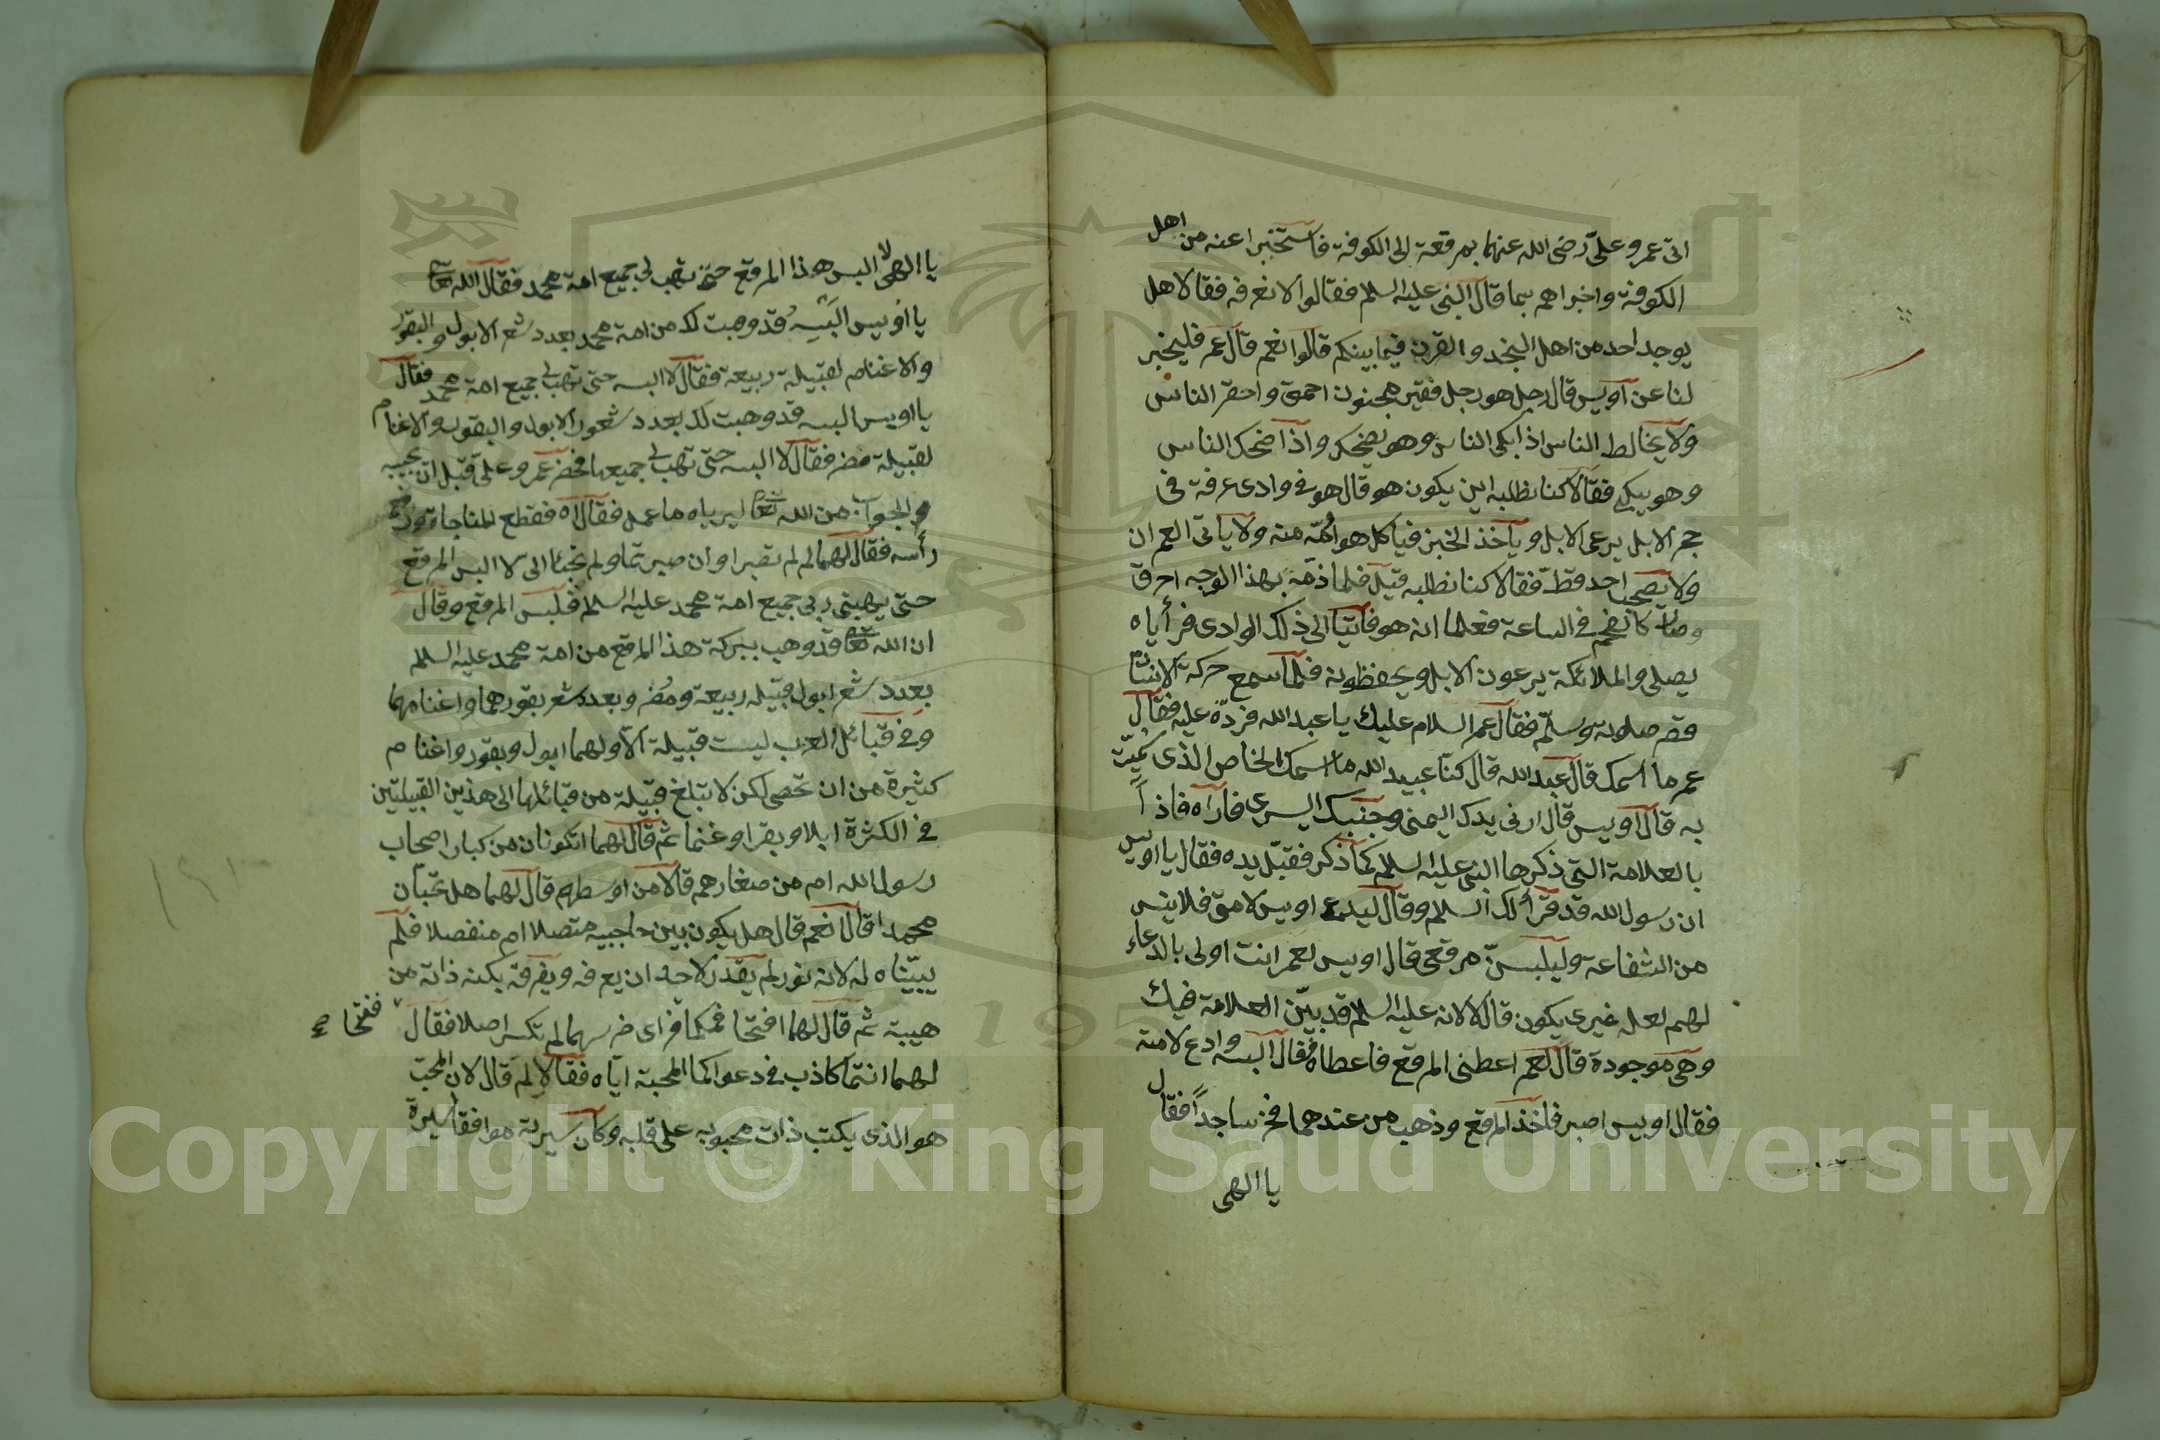 اتى عمر وعلىّ رضى الله عنهما بمرقعة الى الكوفة فاستخبرا عنه من اهل
الكوفة واخبراهم بما قال النبى عليه السلم فقالوا لا نعرفه فقالا هل
يوجد احد من اهل النجد والقرن فيما بينكم قالوا نعم قال عمر فليخبر
لنا عن اويس قال رجل هو رجل فقير مجنون احمق واحقر الناس
ولا يخالط الناس اذا بكى الناس وهو يضحك واذا ضحك الناس
وهو يبكى فقالا كنا نطلبه اين يكون هو قال هو فى وادى عرفة فى
جم الابل يرعى الابل وياخذ الخبز فياكل هو وامّه منه ولا ياتى العمران
ولا يصحب احد قط فقالا كنا نطلبه قيل فلما ذمّه بهذا الوجه احرق
وصار كالفحم فى الساعة فعلما انه هو فاتيا الى ذلك الوادى فرأياه
يصلى والملائكة يرعون الابل ويحفظونه فلما سمع حركة الانسان
قصر صلوته وسلّم فقال عمر السلام عليك يا عبد الله فردّه عليه فقال
عمر ما اسمك قال عبد الله قال كنّا عبيد الله ما اسمك الخاص الذى سميت
به قال اويس قال ارنى يدك اليمنى وجنبك اليسرى فاراه فاذاً
بالعلامة التى ذكرها النبى عليه السلم كما ذكر فقبّل يده فقال يا اويس
ان رسول الله قد قرأ لك السلم وقال ليدع اويس لامتى فلا ينس
من الشفاعة وليلبسنّ مرقعى قال اويس لعمر انت اولى بالدعاء
لهم لعله غيرى يكون قال لا لانه عليه السلم قد بيّن العلامة فيك
وهى موجودة قال لعمر اعطنى المرقع فاعطاه فقال البسه وادع لامته
فقال اويس اصبر فاخذ المرقع وذهب من عندهما فخر ساجداً فقال
يا الهى
يا الهى لا البس هذا المرقع حتى تهب لى جميع امة محمد فقال الله تعا
يا اويس البسه قد وهبت لك من امة محمد بعدد شعر الابول والبقور
والاغنام لقبيلة ربيعة فقال لا البسه حتى تهب لى جميع امة محمد فقال
يا اويس البسه قد وهبت لك بعدد شعور الابول والبقور والاغنام
لقبيلة مضر فقال لا البسه حتى تهب لى جميعها فحضر عمر وعلى قبل ان يجيبه
والجواب من الله تعا ليرياه ما عمل فقال اه فقطع المناجاة ورفع
رأسه فقال لهما لم لم تصبرا وان صبرتما ولم تجيئا الى لا البس المرقع
حتى يهبنى ربى جميع امة محمد عليه السلم فلبس المرقع وقال
ان الله تعا قد وهب ببركة هذا المرقع من امة محمد عليه السلم
بعدد شعر ابول قبيلة ربيعة ومضر وبعدد شعر بقورهما واغنامهما
وفى قبائل العرب ليست قبيلة الا ولهما ابول وبقور واغنام
كثيرة من ان تحصى لكن لا تبلغ قبيلة من قبائلها الى هذين القبيلتين
فى الكثرة ابلا وبقرا وغنما ثم قال لهما اتكونان من كبار اصحاب
رسول الله ام من صغارهم قالا من اوسطهم قال لهما هل تحبّان
محمدا قالا نعم قال هل يكون بين حاجبيه متصلا ام منفصلا فلم
يبيّناه له لانه نور لم يقدر لاحد ان يعرفه ويفرقه بكنه ذاته من
هيبة ثم قال لهما افتحا فمكما فراى ضرسهما لم تكسر اصلا فقال
ففتحا
لهما انتما كاذب فى دعواكما المحبة اياه فقالا لم قال لان المحب
هو الذى يكتب ذات محبوبه على قلبه وكان سيرته موافقا سيرة
Copyright © King Saud University
1957